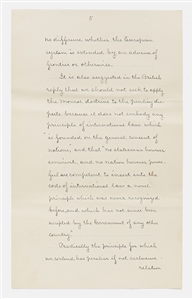 8
no difference whether the European
system is extended by an advance of
frontier or otherwise.
It is also suggested in the British
reply that we should not seek to apply
the Monroe doctrine to the pending dis-
pute because it does not embody any
principle of international law which
"is founded on the general consent of
nations," and that "no statesman however
eminent, and no nation however power-
ful are competent to insert into the
code of international law a novel
principle which was never recognized
before and which has not since been
accepted by the Government of any other
country."
Practically the principle for which
we contend has peculiar if not exclusive
relation